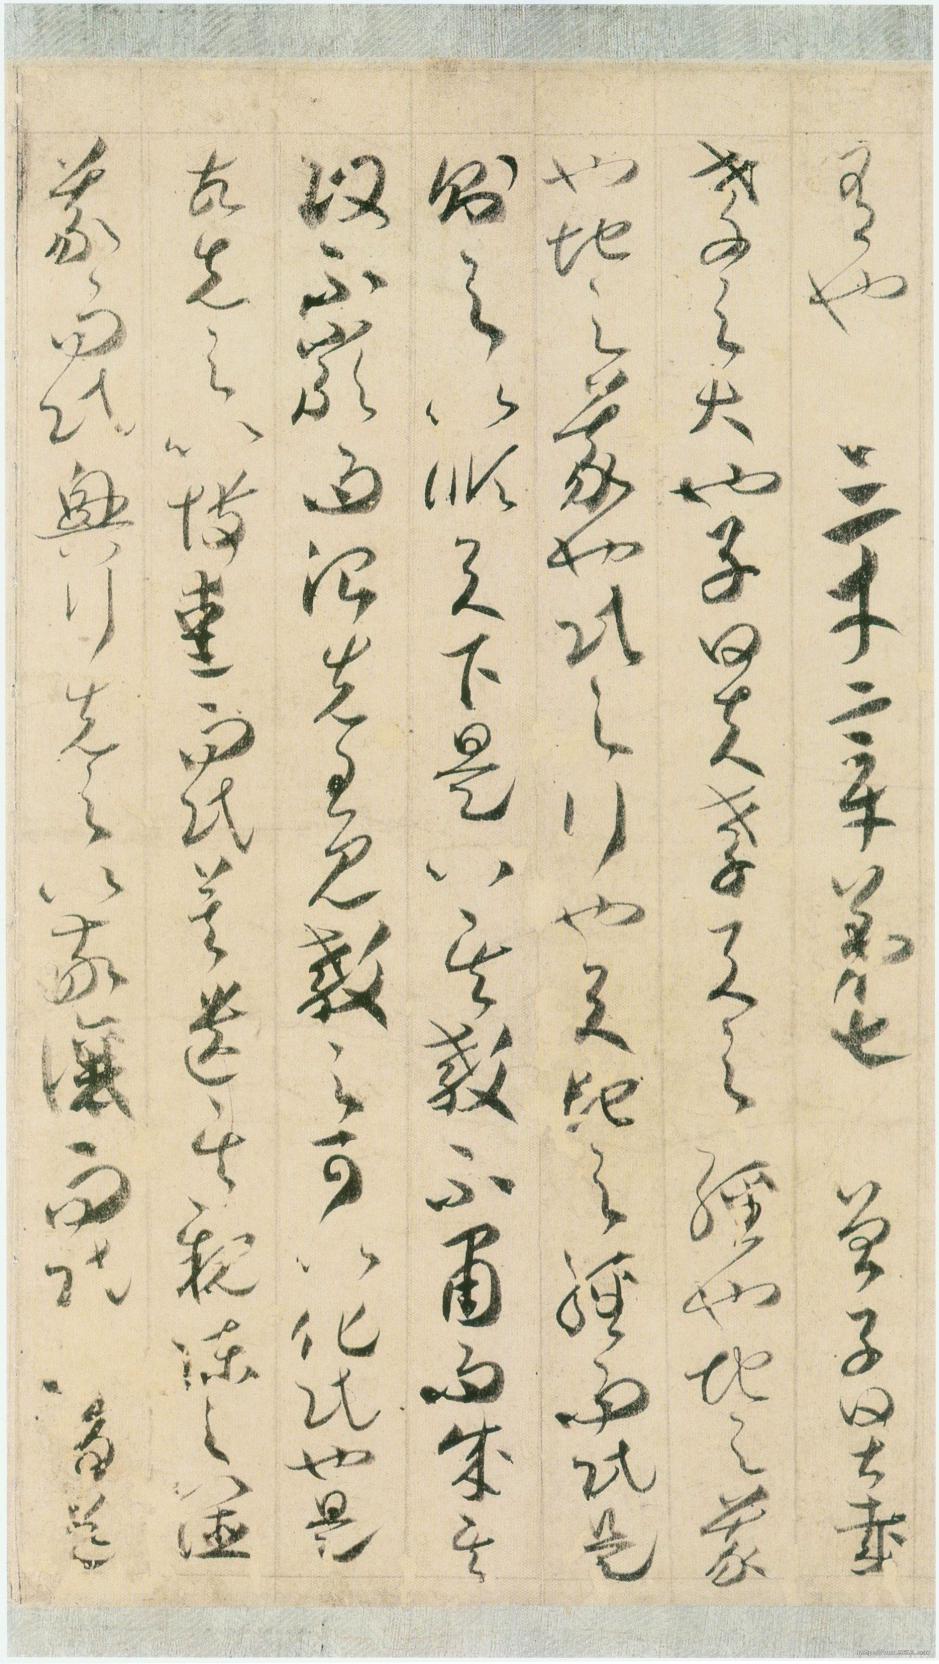 有也 三才章第七 曾子曰甚哉
孝之大也子曰夫孝天之經也地之義
也地之義也民之行也天地之經而民是
則之以順天下是以其教不肅而成其
政不嚴而治先王見教之可以化民也是
故先之以博愛而民莫遺其親陳之以德
義而民興行先之以敬讓而民不爭導